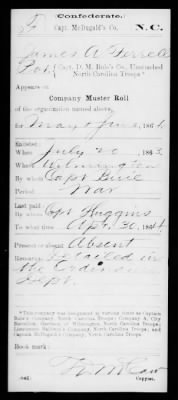 Confederate.
Capt. McDugald's Co. N.C.
James A Terrell
(Capt. D. M. Buie's Co., Unattached
North Carolina Troops*)
Appears on
Company Muster Roll
of the organization named above,
for May & June, 1864.
Enlisted:
When July 20, 1863
Where Wilmington
By whom Capt Buie
Period War
Last paid:
By whom Cpt Huggins
To what time Apr. 30, 1864.
Present or absent Absent
Remarks: Detailed in
the Ordinance
Dept.
*This company was designated at various times as Captain
Buie's Company, North Carolina Troops;
North Carolina Troops;
and
Captain McDugald's Company, North Carolina Troops.
Book mark:
Copyist.